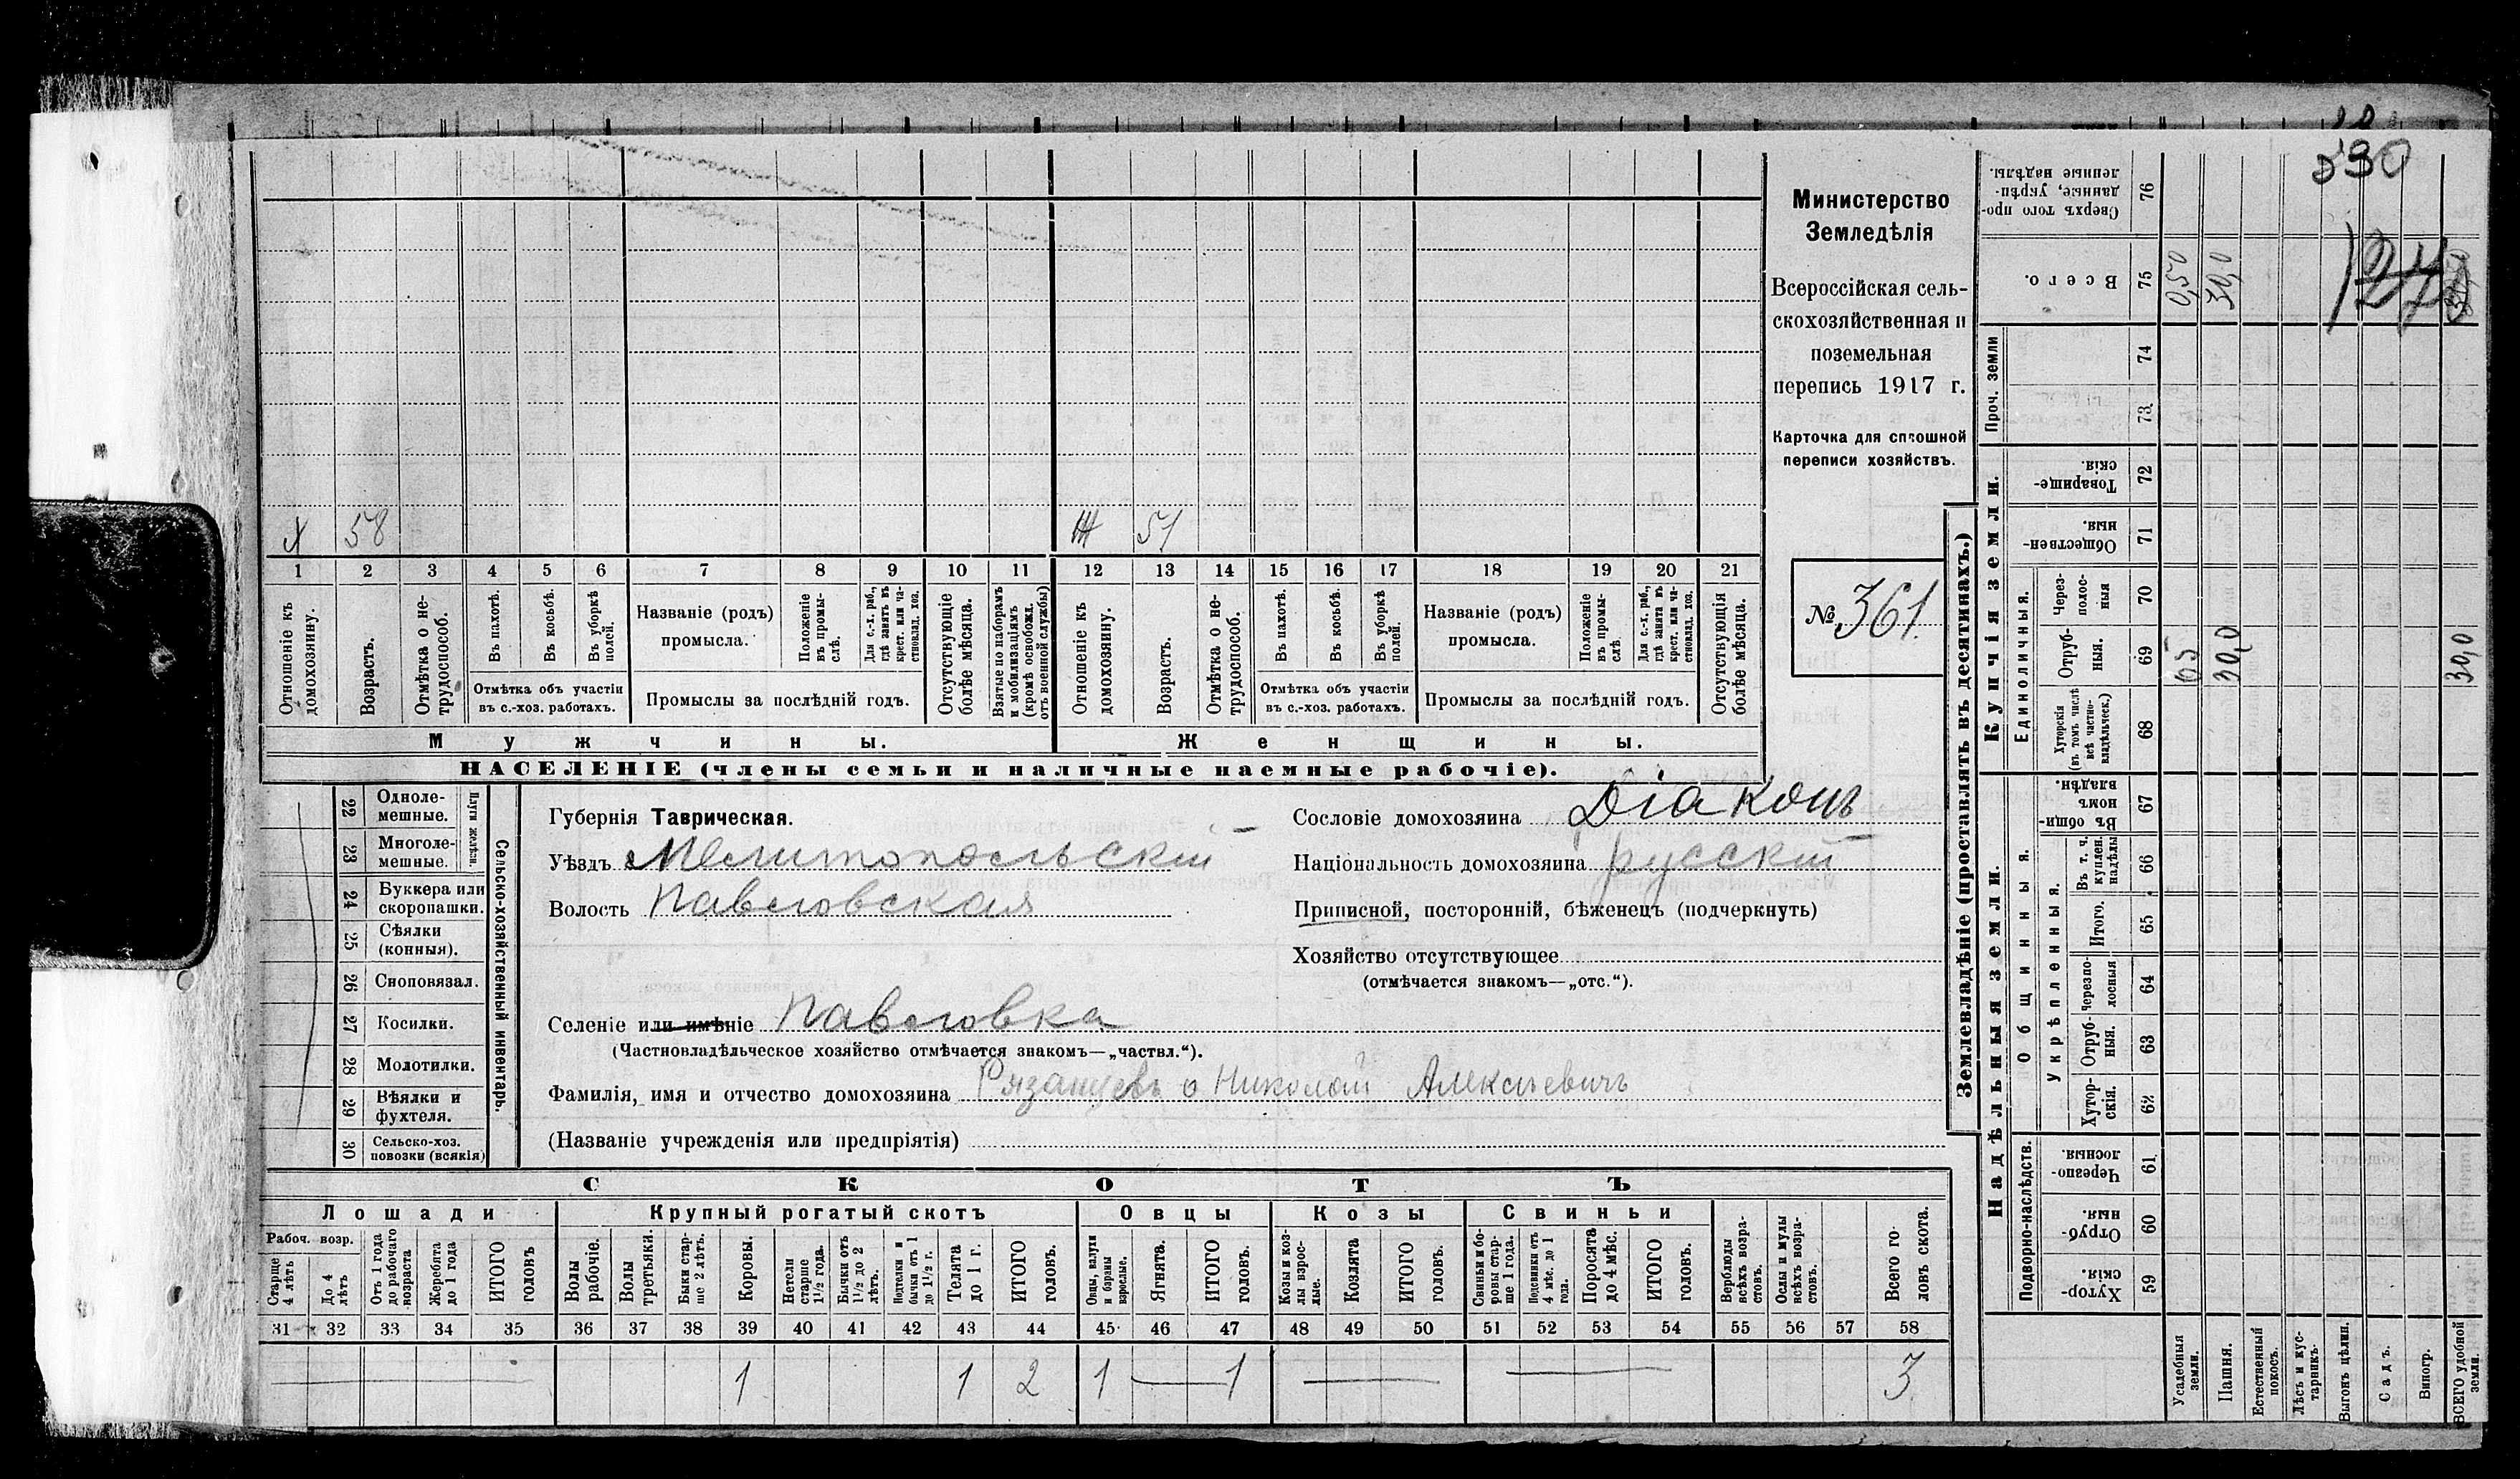 530
124
х 58 Ж 51
1 2 3 4 5 6 7 8 9 10 11 12 13 14 15 16 17 18 19 20 21
Отношеніе къ домохозяину.
Возрастъ.
Отмѣтка о нетрудоспособ.
Въ пахотѣ.
Въ косьбѣ.
Въ уборкѣ полей.
Отмѣтка объ участіи
въ с.-хоз. работахъ.
Названіе (родъ)
промысла.
Положеніе въ промыслѣ.
Для с.-х. раб., гдѣ занятъ въ крест. или частновлад. хоз.
Промыслы за послѣдній годъ.
Отсутствующіе болѣе мѣсяца.
Взятые по наборамъ и мобилизаціямъ (кромѣ освобожд. отъ военной службы)
Отношеніе къ домохозяину.
Возрастъ.
Отмѣтка о нетрудоспособ.
Въ пахотѣ.
Въ косьбѣ.
Въ уборкѣ полей.
Отмѣтка объ участіи
въ с.-хоз. работахъ.
Названіе (родъ)
промысла.
Положеніе въ промыслѣ
Для с.-х. раб., гдѣ занята въ крест. или частновлад. хоз.
Промыслы за послѣдній годъ.
Отсутствующія болѣе мѣсяца.
Мужчины. Женщины.
НАСЕЛЕНІЕ (члены семьи и наличные наемные рабочіе).
Министерство
Земледѣлія
Всероссійская сель-
скохозяйственная и
поземельная
перепись 1917 г.
Карточка для сплошной
переписи хозяйствъ.
№ 361.
Сельско-хозяйственный инвентарь.
Плуги желѣзн.
22 Однолемешные.
23 Многолемешные.
24 Буккера или скоропашки.
25 Сѣялки (конныя).
26 Сноповязал.
27 Косилки.
28 Молотилки.
29 Вѣялки и фухтеля.
30 Сельско-хоз. повозки (всякія)
Губернія Таврическая.
Уѣздъ Мелитопольскій
Волость Павловская
Селеніе или имѣніе Павловка
(Частновладѣльческое хозяйство отмѣчается знакомъ—„частвл.“).
Фамилія, имя и отчество домохозяина Рязанцевъ о Николай Алексѣевичъ
(Названіе учрежденія или предпріятія)
Сословіе домохозяина Діаконъ
Національность домохозяина русскій
Приписной, посторонній, бѣженецъ (подчеркнуть)
Хозяйство отсутствующее
(отмѣчается знакомъ—„отс.“).
СКОТЪ
Лошади Крупный рогатый скотъ Овцы Козы Свиньи
Рабоч. возр.
Старше 4 лѣтъ
До 4 лѣтъ
Отъ 1 года до рабочаго возраста
Жеребята до 1 года
ИТОГО головъ
Волы рабочіе.
Волы третьяки.
Быки старше 2 лѣтъ.
Коровы.
Нетели старше 1½ года.
Бычки отъ 1½ до 2 лѣтъ.
Нетелки и бычки отъ 1 до 1½ г.
Телята до 1 г.
ИТОГО головъ.
Овцы, валухи и бараны взрослые.
Ягнята.
ИТОГО головъ.
Козы и козлы взрослые.
Козлята
ИТОГО головъ.
Свиньи и боровы старше 1 года.
Подсвинки отъ 4 мѣс. до 1 года.
Поросята до 4 мѣс.
ИТОГО головъ.
Верблюды всѣхъ возрастовъ.
Ослы и мулы всѣхъ возрастовъ.
Всего головъ скота.
31 32 33 34 35 36 37 38 39 40 41 42 43 44 45 46 47 48 49 50 51 52 53 54 55 56 57 58
1 1 2 1 — 1 3
Землевладѣніе (проставлять въ десятинахъ.)
Купчія земли.
Надѣльныя земли.
Сверхъ того проданные, укрѣпленные надѣлы. 76
Всего. 75 0,50 30,0
Проч. земли
74
73
Товарищескія. 72
Общественныя. 71
Единоличныя.
Черезполосныя 70
Отрубныя. 69 0,5 30,0 30,0
Хуторскія (въ томъ числѣ всѣ частновладѣльческ.) 68
Общинныя.
Въ общинномъ владѣн. 67
Укрѣпленныя.
Въ т. ч. куплен. надѣлы 66
Итого. 65
Черезполосныя 64
Отрубныя. 63
Хуторскія. 62
Подворно-наслѣдств.
Черезполосныя. 61
Отрубныя. 60
Хуторскія. 59
Усадебныя земли.
Пашня.
Естественный покосъ.
Лѣсъ и кустарникъ.
Выгонъ цѣлин.
Садъ.
Виногр.
ВСЕГО удобной земли.